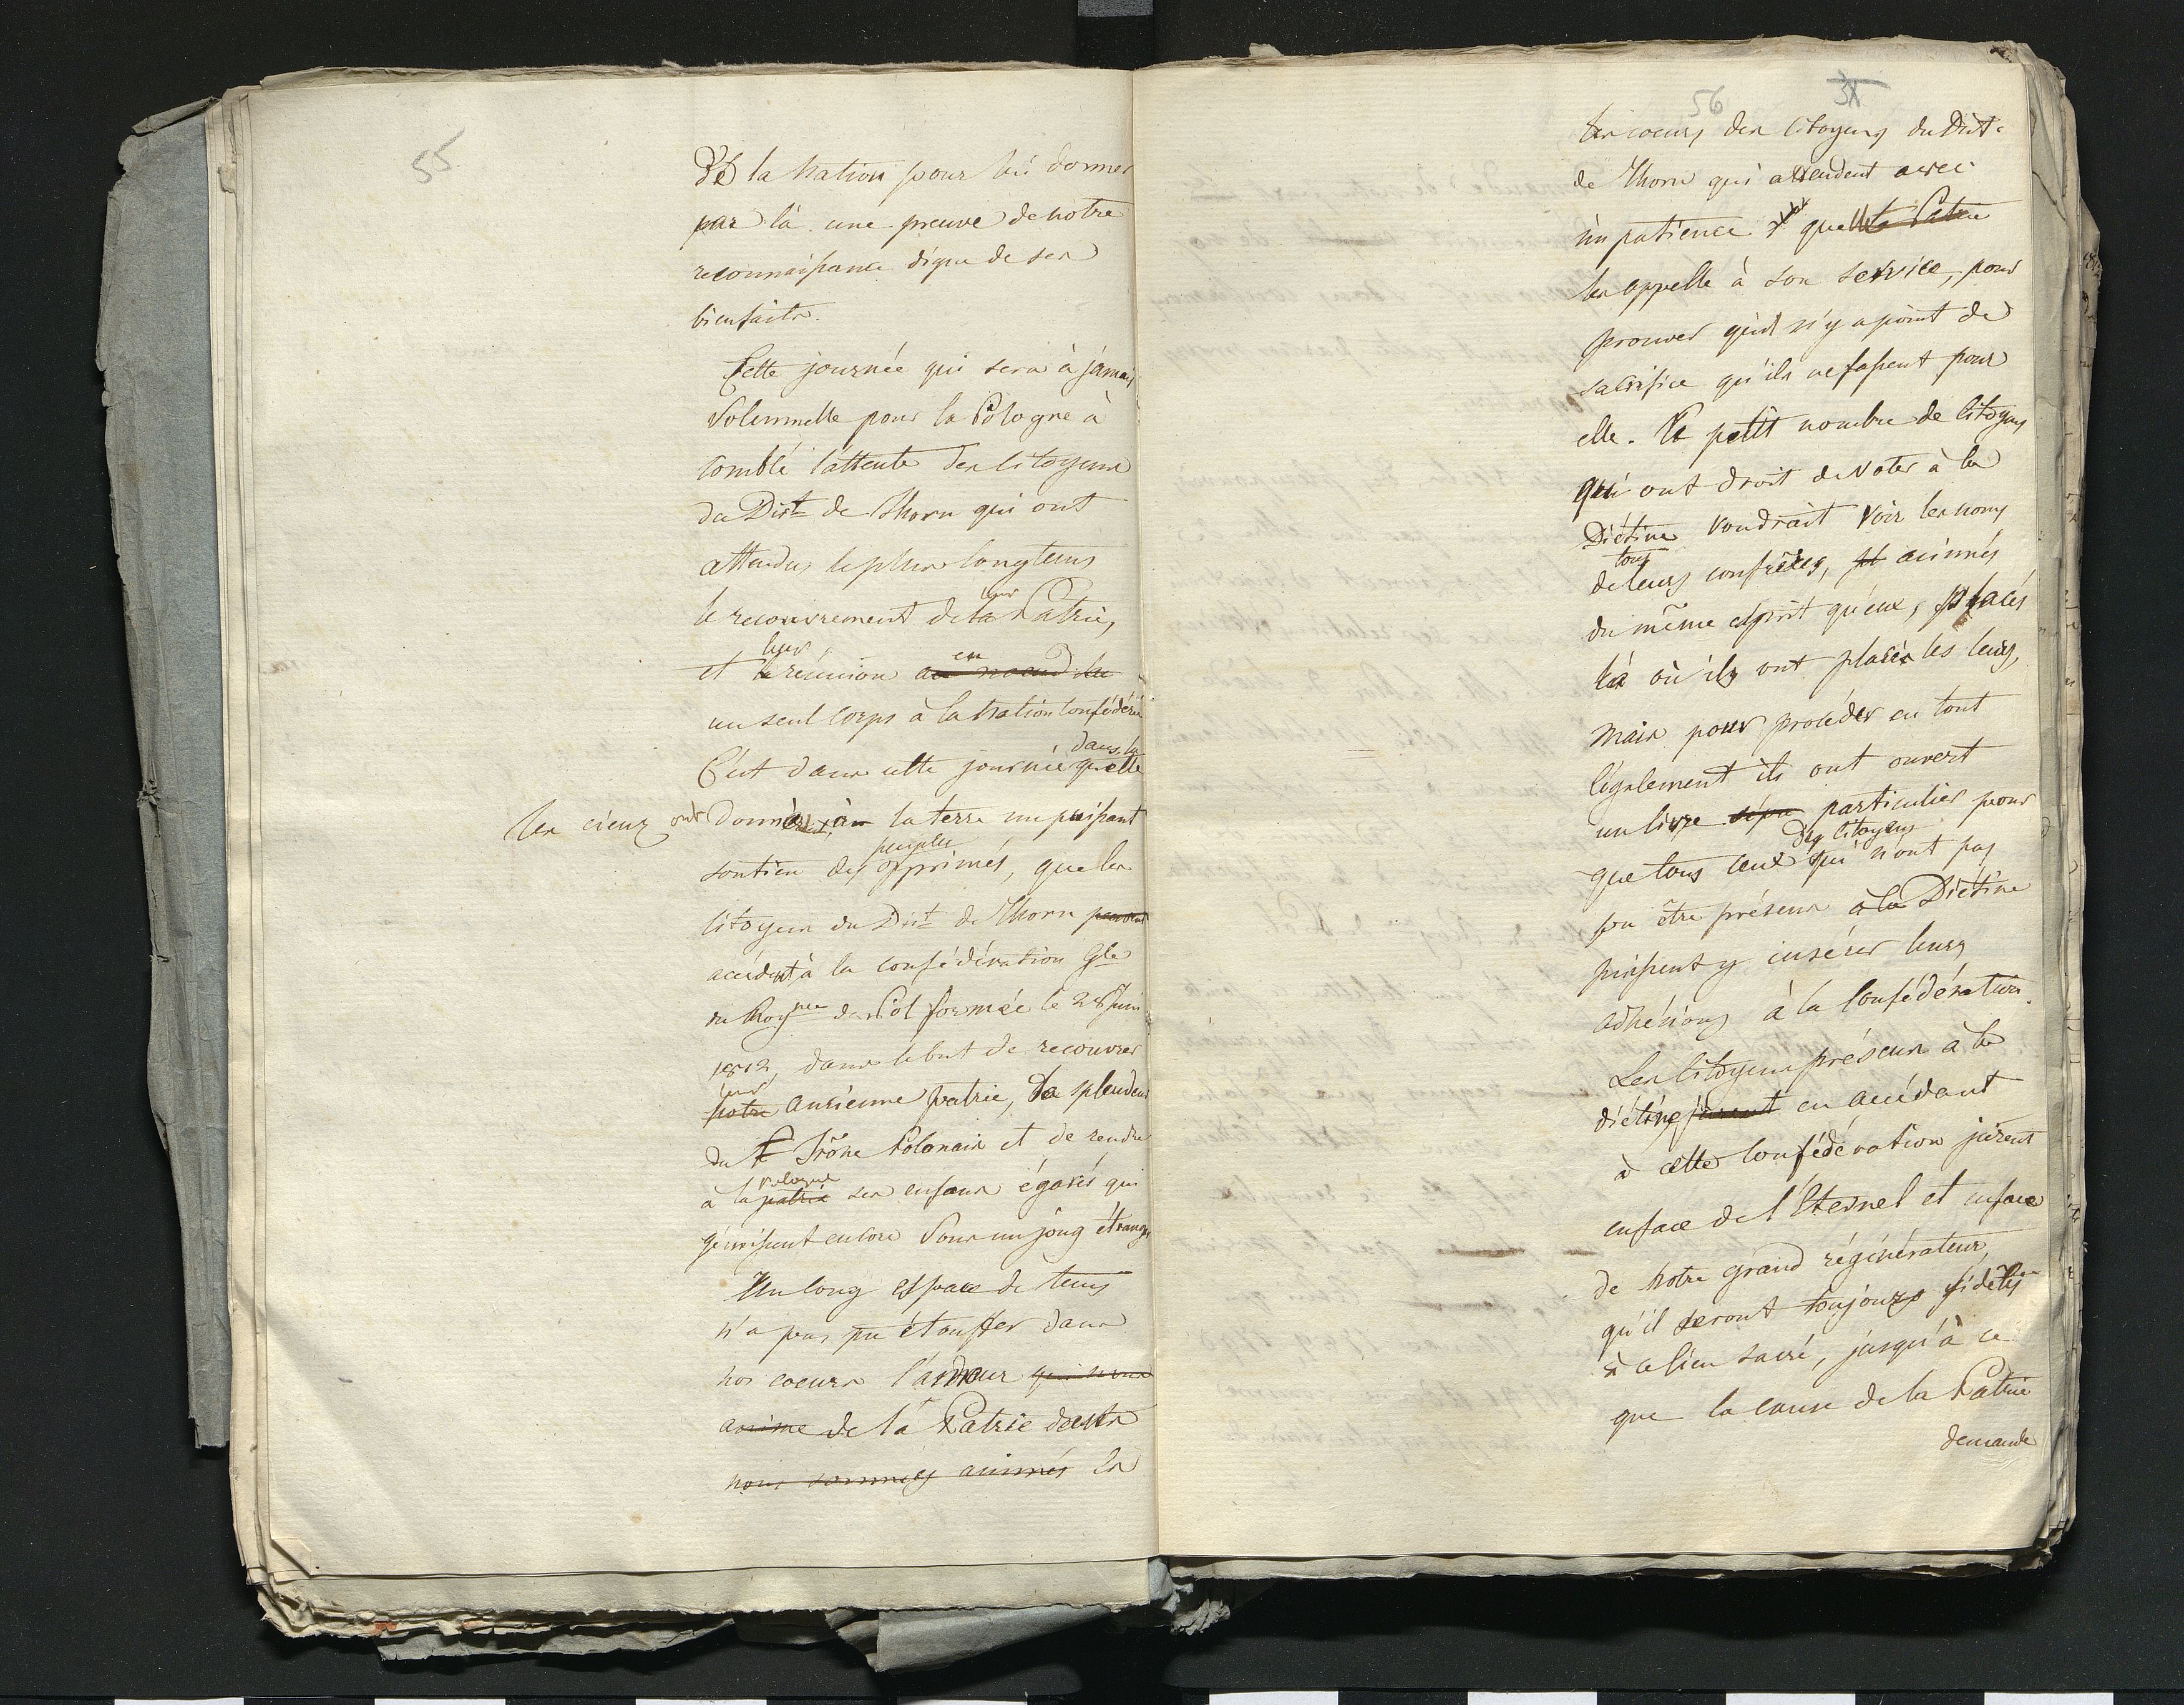 55
De la Nation pour lui donner
par là une preuve de notre
reconnaissance digne de ses
bienfaits.
Cette journée qui sera à jamais
solemnelle pour la Pologne à
comblé l'attente des citoyens
du Dist de Thorn qui ont
attendus le plus longtems
leur
le recouvrement de la Patrie,
leur en
et la réunion au noeud de
un seul corps à la Nation confédérée
dans la
C'est dans cette journée quelle
les cieux ont donnés à la terre un puissant
peuples
soutien des opprimés, que les
citoyens du Dist de Thorn
accedent à la confédération Gle
du Roy de Pol formée le 28 Juin
1812, dans le but de recouvrer
leur
notre ancienne patrie, la splendeur
du Trône Polonais et de rendre
Pologne
à la patrie ses enfans égarés qui
gémissent encore sous un joug étranger
Un long espace de tems
n'a pas pu étouffer dans
nos coeurs l'amour qui nous
anime de la Patrie dont
nous sommes animés Les
56
les coeurs des citoyens du Dist
de Thorn qui attendent avec
impatience que la Patrie
les appelle à son service, pour
prouver qu'il n'y a point de
sacrifice qu'ils ne fassent pour
elle. Le petit nombre de citoyens
qui ont droit de voter à la
Diétine voudrait voir les noms
tous
de leurs confrères, animés
du même esprit qu'eux, placés
là où ils ont placés les leurs,
Mais pour procéder en tout
légalement ils ont ouvert
un livre particulier pour
des citoyens
que tous ceux qui n'ont pas
pu être présens à la Diétine
puissent y insérer leurs
adhésions à la Confédération.
Les Citoyens présens à la
diétine jurent en accédant
à cette Confédération jurent
en face de l'Eternel et en face
de notre grand régénérateur,
qu'il seront toujours fidèles
à ce lien sacré, jusqu'à ce
que la cause de la Patrie
demande